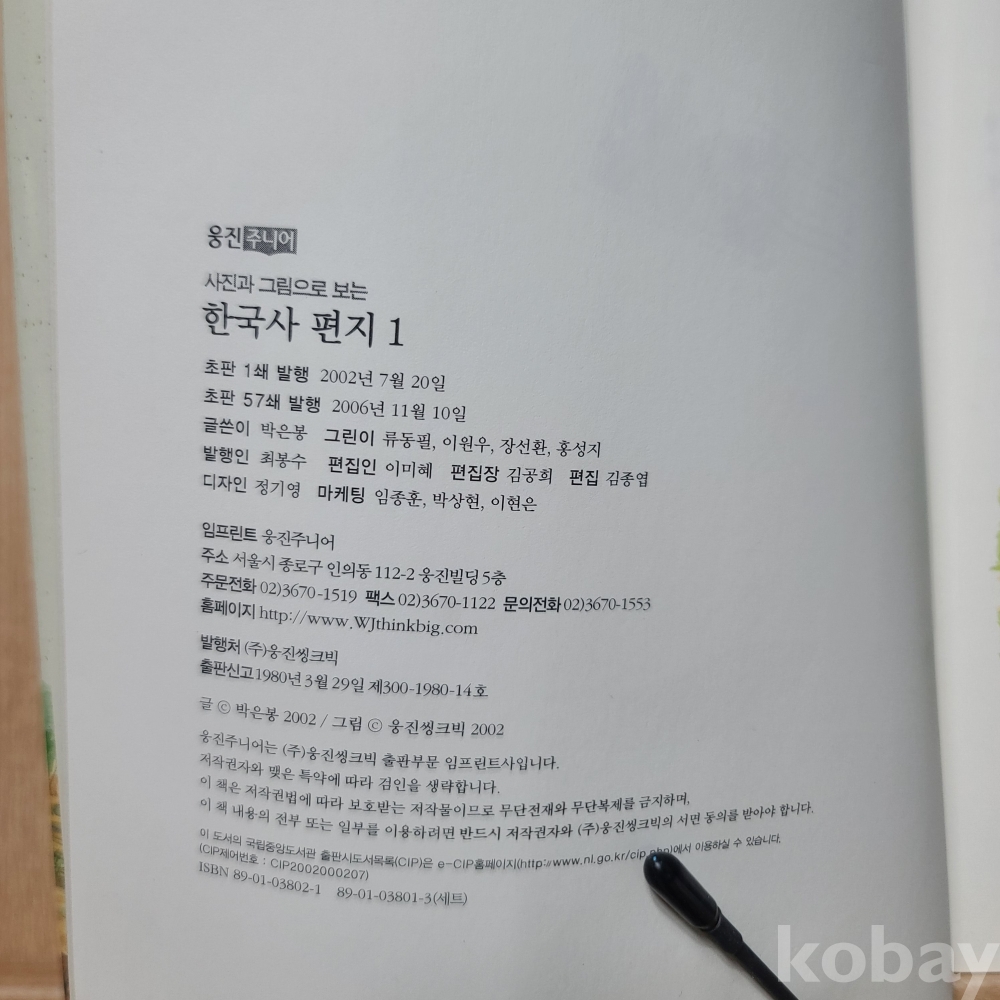 웅진주니어
사진과 그림으로 보는
한국사 편지 1
초판 1쇄 발행 2002년 7월 20일
초판 57쇄 발행 2006년 11월 10일
글쓴이 박은봉 그린이 류동필, 이원우, 장선환, 홍성지
발행인 최봉수 편집인 이미혜 편집장 김공희 편집 김종엽
디자인 정기영 마케팅 임종훈, 박상현, 이현은
임프린트 웅진주니어
주소 서울시 종로구 인의동 112-2 웅진빌딩 5층
주문전화 02)3670-1519 팩스 02)3670-1122 문의전화 02)3670-1553
홈페이지 http://www.WJthinkbig.com
발행처 (주)웅진씽크빅
출판신고 1980년 3월 29일 제300-1980-14호
글 ⓒ 박은봉 2002 / 그림 ⓒ 웅진씽크빅 2002
웅진주니어는 (주)웅진씽크빅 출판부문 임프린트사입니다.
저작권자와 맺은 특약에 따라 검인을 생략합니다.
이 책은 저작권법에 따라 보호받는 저작물이므로 무단전재와 무단복제를 금지하며,
이 책 내용의 전부 또는 일부를 이용하려면 반드시 저작권자와 (주)웅진씽크빅의 서면 동의를 받아야 합니다.
이 도서의 국립중앙도서관 출판시도서목록(CIP)은 e-CIP홈페이지(http://www.nl.go.kr/cip.php)에서 이용하실 수 있습니다.
(CIP제어번호 : CIP2002000207)
ISBN 89-01-03802-1 89-01-03801-3(세트)
kobay